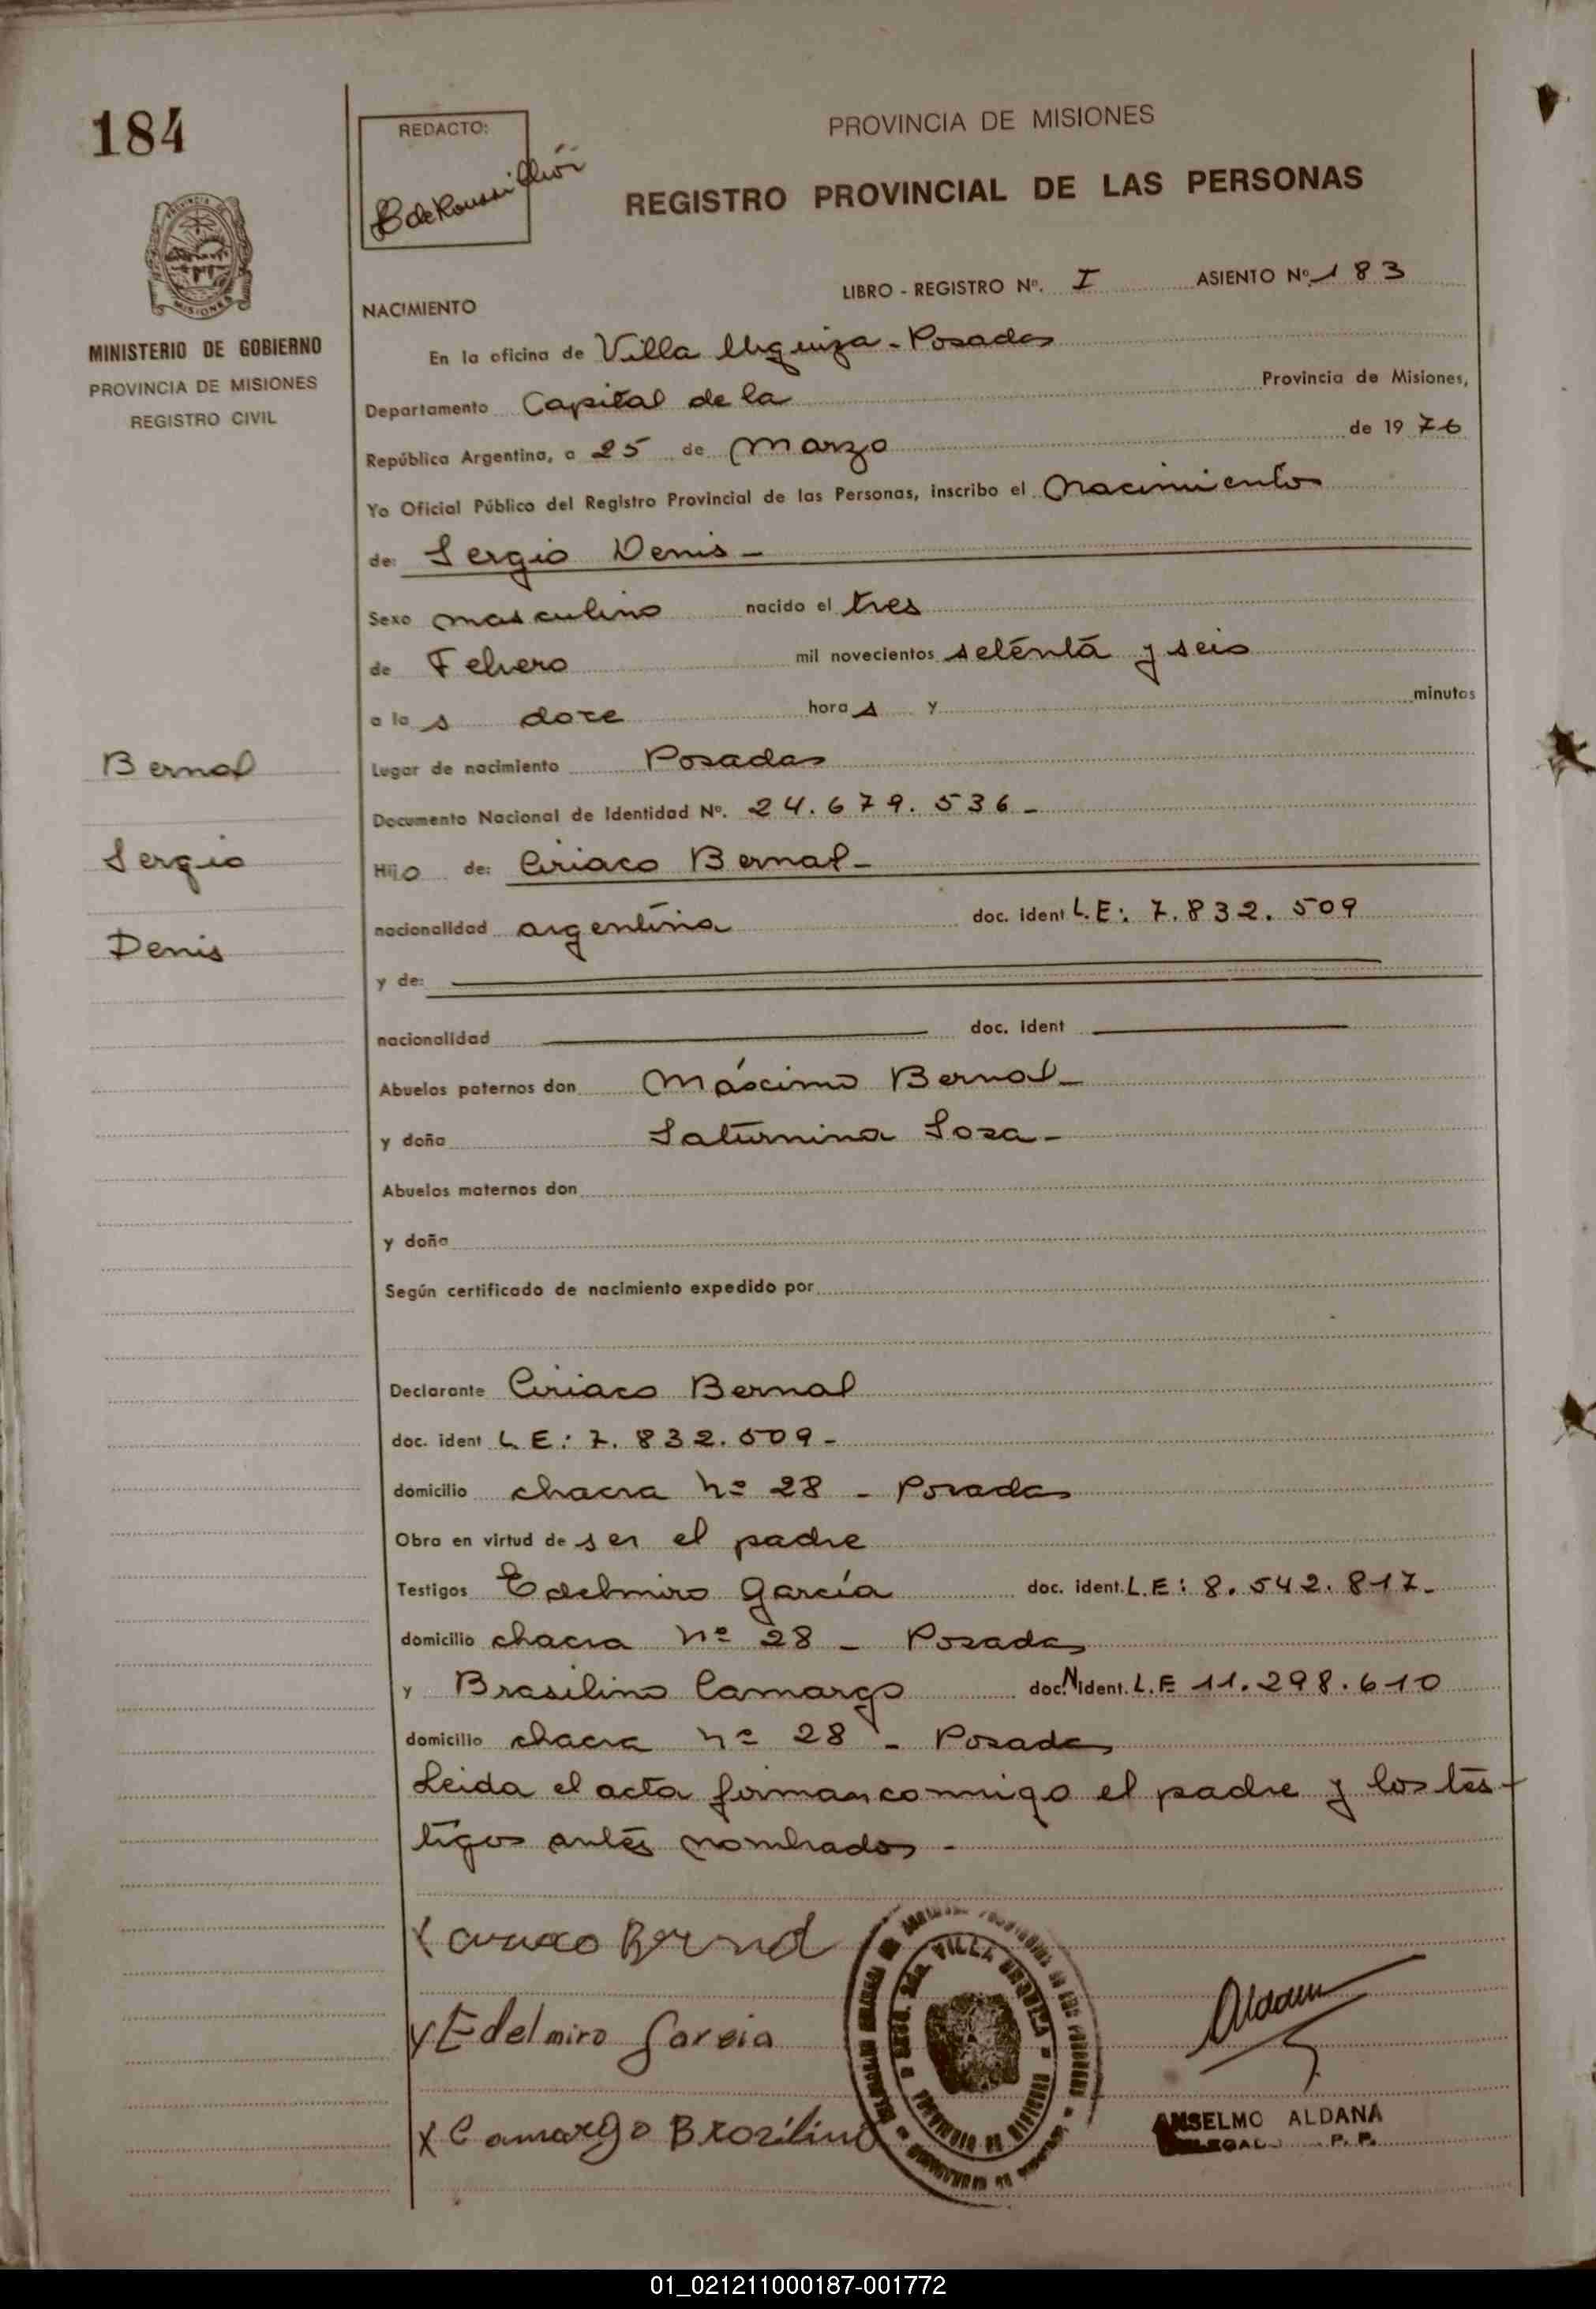 184
REDACTO:
PROVINCIA DE MISIONES
REGISTRO PROVINCIAL DE LAS PERSONAS
MISIONES
MINISTERIO DE GOBIERNO
PROVINCIA DE MISIONES
REGISTRO CIVIL
LIBRO - REGISTRO Nº. I ASIENTO Nº. 183
NACIMIENTO
En la oficina de Villa Urquiza - Posadas
Departamento Capital de la Provincia de Misiones,
República Argentina, a 25 de Marzo de 1976
Yo Oficial Público del Registro Provincial de las Personas, inscribo el Nacimiento
de: Sergio Denis -
Sexo masculino nacido el tres
de Febrero mil novecientos setenta y seis
a las doce horas y minutos
Bernal
Lugar de nacimiento Posadas
Documento Nacional de Identidad Nº. 24.679.536 -
Sergio
Hijo de: Ciriaco Bernal -
nacionalidad argentina doc. ident L.E: 7.832.509
Denis
y de:
nacionalidad doc. ident
Abuelos paternos don Máscimo Bernal -
y doña Saturnina Sosa -
Abuelos maternos don
y doña
Según certificado de nacimiento expedido por
Declarante Ciriaco Bernal
doc. ident L.E: 7.832.509 -
domicilio chacra nº 28 - Posadas
Obra en virtud de ser el padre
Testigos Edelmiro García doc. ident. L.E: 8.542.817 -
domicilio chacra nº 28 - Posadas
y Brasilino Camargo doc. N ident. L.E 11.298.610
domicilio chacra nº 28 - Posadas
Leida el acta firman conmigo el padre y los tes-
tigos antes nombrados -
X Ciriaco Bernal
X Edelmiro Garcia
X Camargo Brazilino
VILLA URQUIZA
Aldana
ANSELMO ALDANA
DELEGADO P. P.
01_021211000187-001772